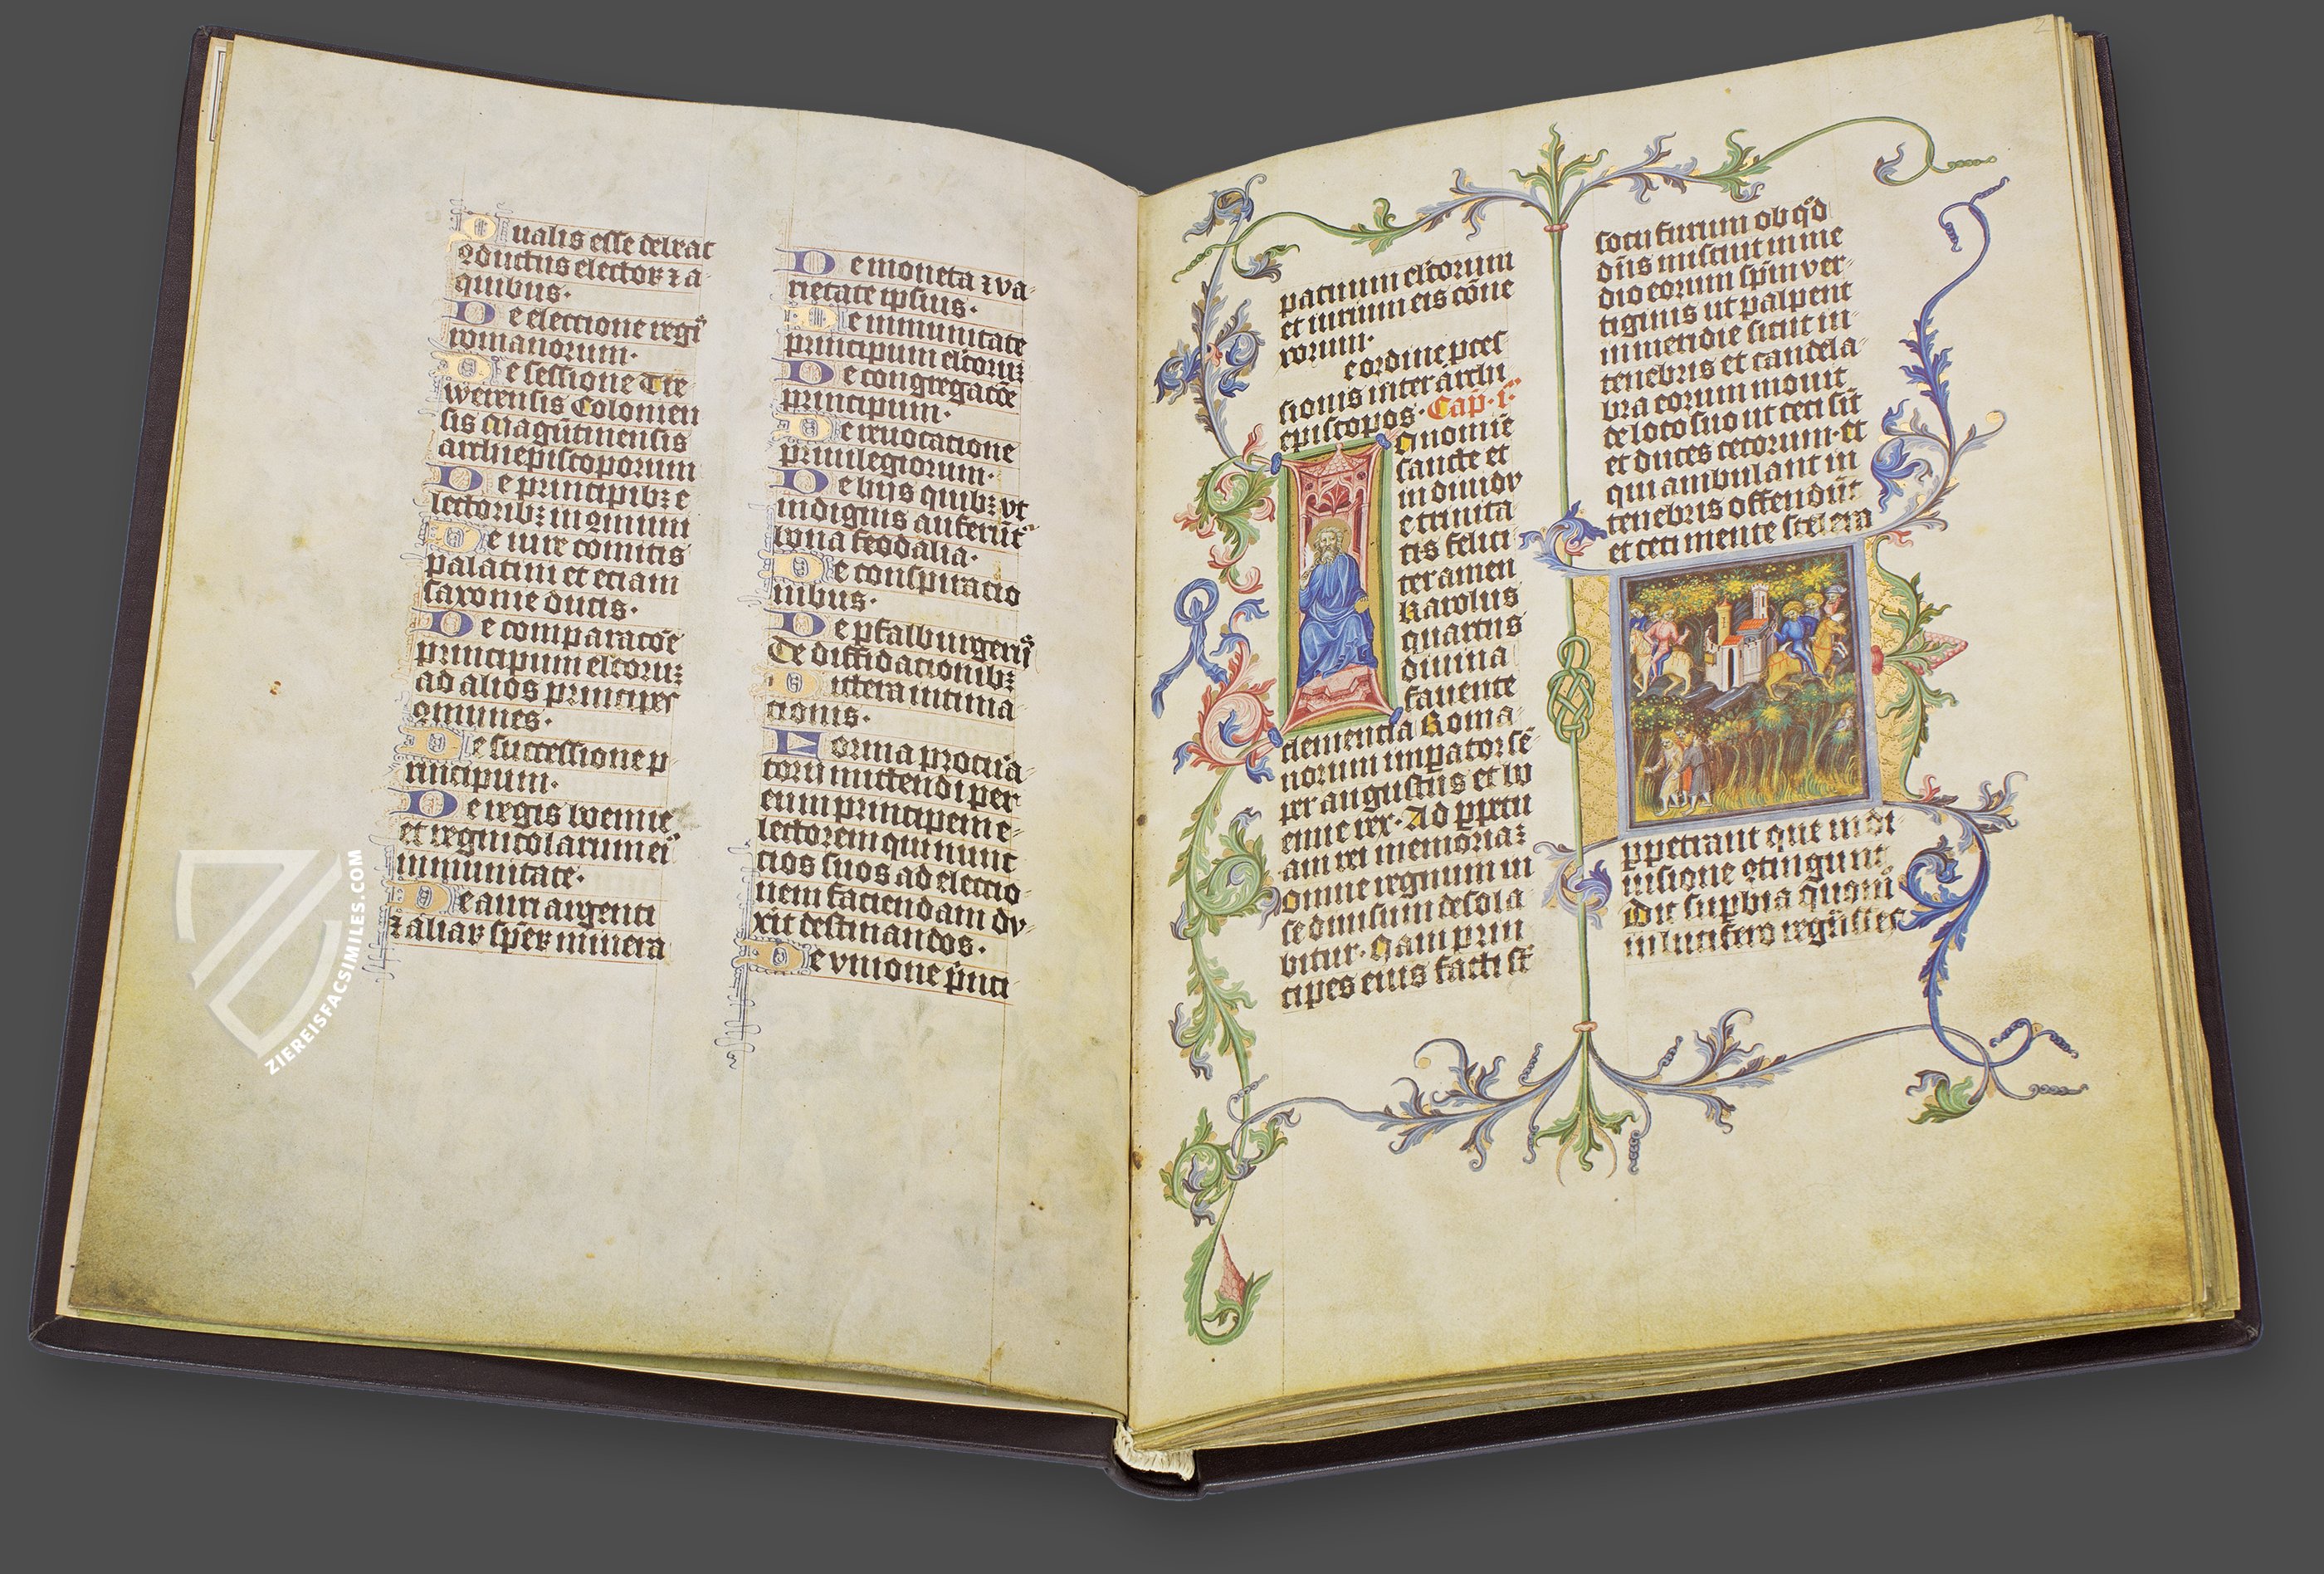 Qualis esse debeat
ꝯductus electoꝝ ⁊ a
quibus·
De eleccione regꝭ
romanorum·
De sessione Tre
werensis Colonien
sis Maguntinensis
archiepiscoporum
De principibꝫ e
lectoribꝫ in ꝯmuni
De iure comitis
palatini et eciam
saxonie ducis·
De comparacōe
principum elc̄oruꝫ
ad alios principes
ꝯmunes·
De successione p
rincipum·
De regis boemie
et regnicolarum eiꝰ
immunitate·
De auri argenti
⁊ aliaꝝ sp̄eꝝ minera
De moneta ⁊ va-
rietate ipsius·
De immunitate
principum elc̄oruꝫ
De congregacōe
principum·
De reuocatione
priuilegiorum·
De hiis quibꝫ vt
indignis auferūt᷑
bona feodalia·
De conspiracio
nibus·
De pfalburgeriꝰ
De diffidacionibꝫ
Littera intima-
cionis·
Forma procura-
torii mittendi per
eum principem e-
lectorem qui nunc
cios suos ad eleccio-
nem faciendam du-
xit destinandos·
De vnione p̄nci
2
pacium elc̄orum
et iurium eis cōne
xorum·
De ordine p̄ces
sionis inter archi
episcopos· Cap· i·
In nomine
sancte et
indiuidu
e trinita
tis felici
ter amen
Karolus
quartus
diuina
fauente
clemencia Roma-
norum imꝑator sē
per augustus et bo
emie rex· Ad ꝑpetu
am rei memoriaꝫ
Omne regnum in
se diuisum desola
bitur· Nam prin
cipes eius facti sūt
socii furum ob qd̄
dn̄s miscuit in me
dio eorum spm̄ ver-
tiginis ut palpent
in meridie sicut in-
tenebris et candela-
bra eorum mouit
de loco suo ut ceci sīt
et duces cecorum· et
qui ambulant in
tenebris offendūt
et ceci mente scelera
ꝑpetrant que in di
uisione ꝯtingunt
Dic suꝑbia quomō
in lucifero regn̄sses
ZIEREISFACSIMILES.COM